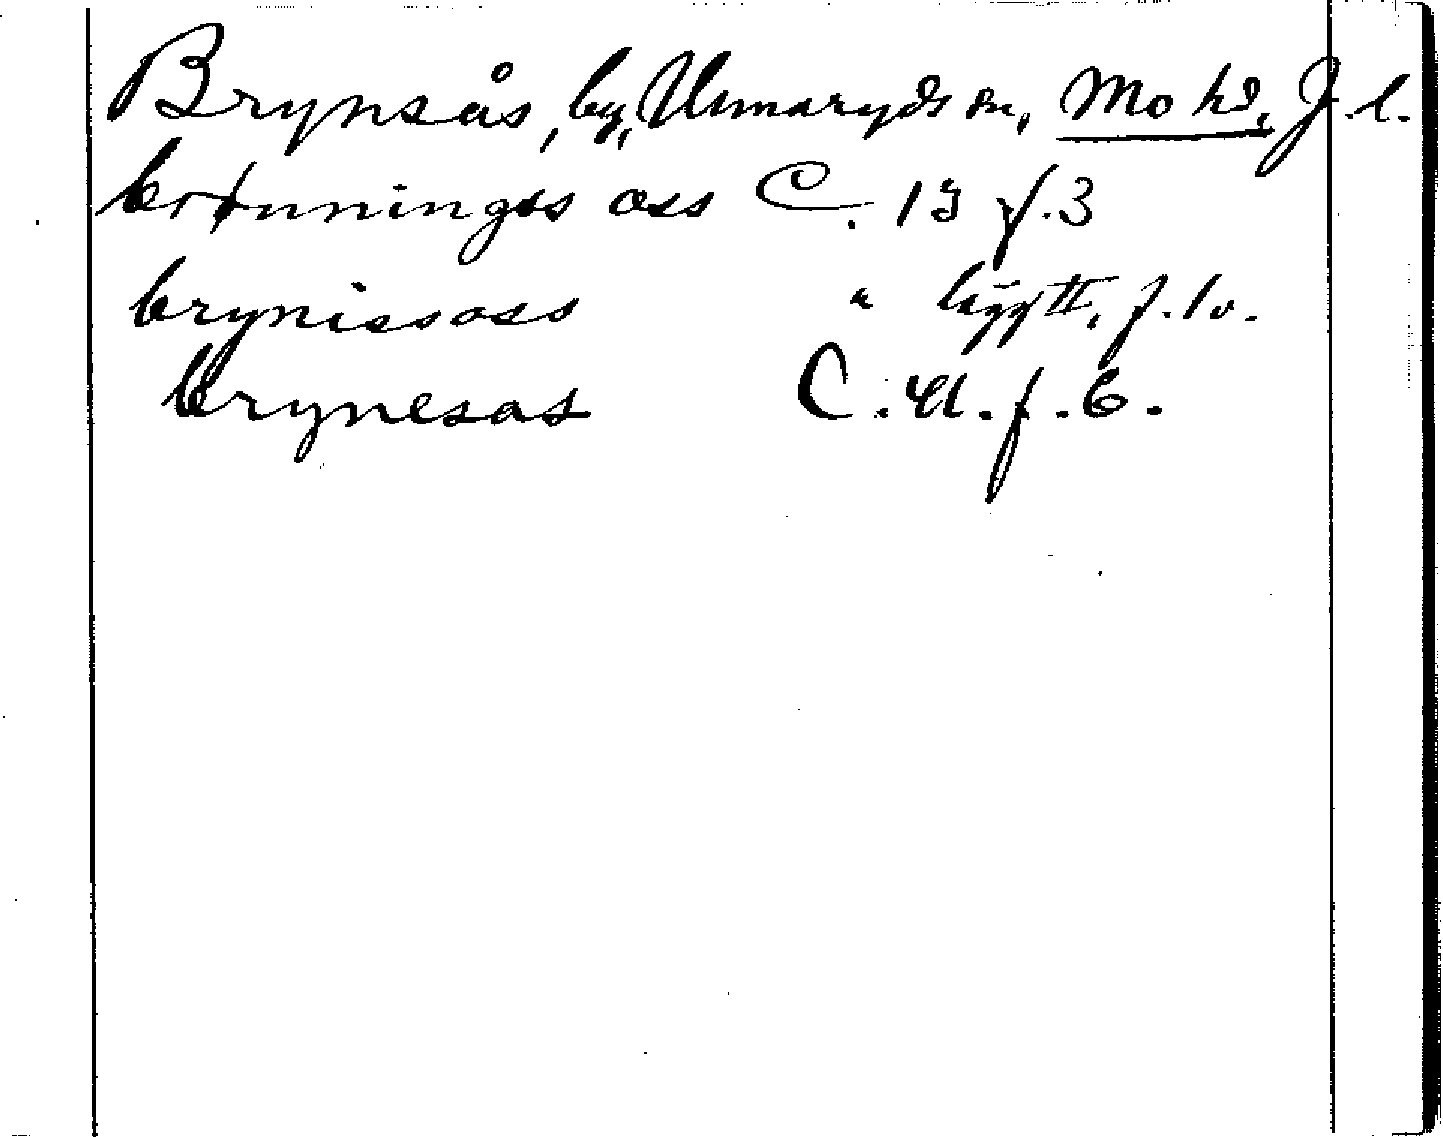 Brynsås, by, Unnaryds sn, Mo hd, J. l.
brønningss oss C. 13 f. 3
brynissoss " lägg II, f. 1v.
brynesas C. 41. f. 6.